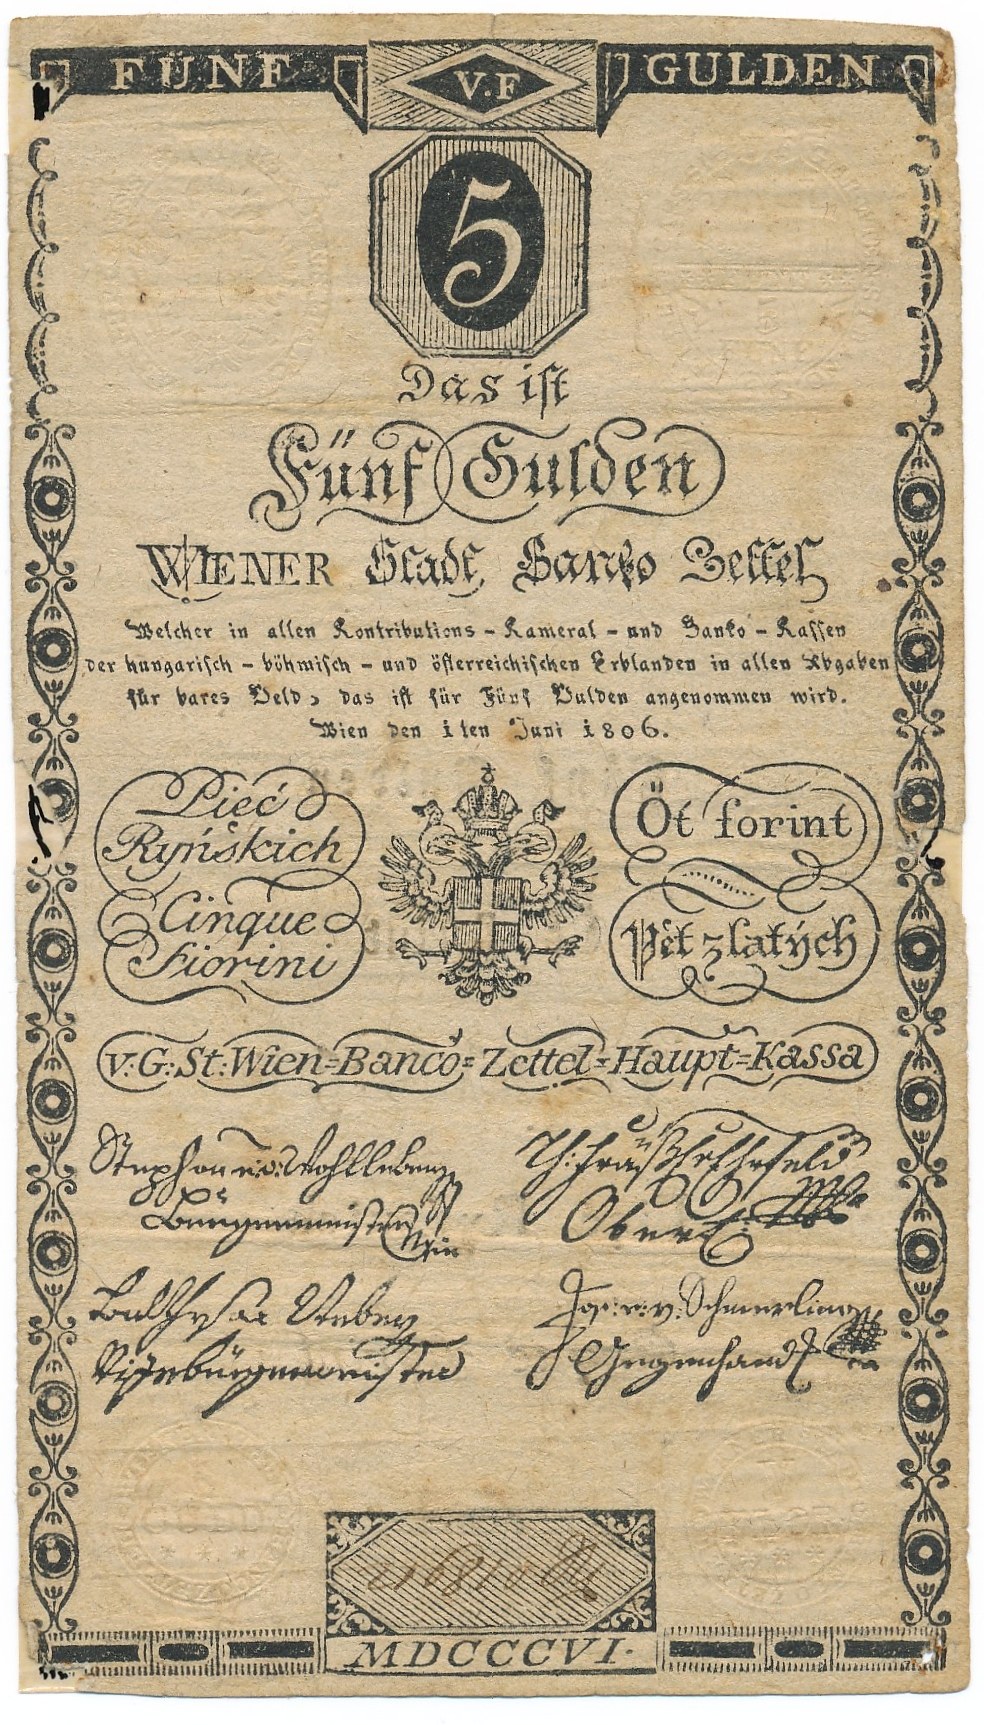 FÜNF V.F GULDEN
5
Das ist
Fünf Gulden
WIENER Stadt, Banko Zettel
Welcher in allen Kontributions - Kameral - und Banko - Kassen
der hungarisch - böhmisch - und österreichischen Erblanden in allen Abgaben
für bares Geld, das ist für Fünf Gulden angenommen wird.
Wien den 1ten Juni 1806.
Pieć
Ryńskich
Cinque
Fiorini
Öt forint
Pět zlatých
v:G:St:Wien=Banco=Zettel=Haupt=Kassa
Stephan v: Wohlleben
Bürgermeister
Wien
Vizebürgermeister
Jos: v: v: Schmerling
Gegenhand
MDCCCVI.